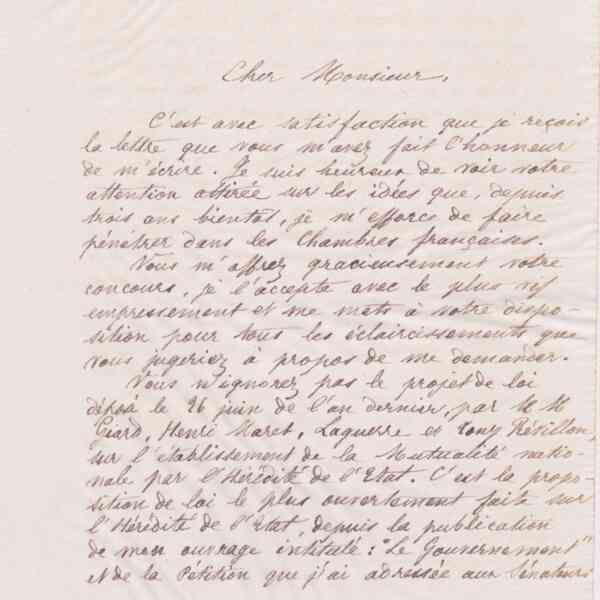 Cher Monsieur,
C'est avec satisfaction que je reçois
la lettre que vous m'avez fait l'honneur
de m'écrire. Je suis heureux de voir votre
attention attirée sur les idées que, depuis
trois ans bientot, je m'efforce de faire
pénétrer dans les Chambres françaises.
Vous m'offrez gracieusement votre
concours, je l'accepte avec le plus vif
empressement et me mets à votre dispo-
sition pour tous les éclaircissements que
vous jugeriez à propos de me demander.
Vous n'ignorez pas le projet de loi
déposé le 26 juin de l'an dernier, par M M
Giard, Henri Maret, Laguerre et Tony Révillon,
sur l'établissement de la Mutualité natio-
nale par l'Hérédité de l'Etat. C'est la propo-
sition de loi le plus ouvertement faite sur
l'Hérédité de l'Etat, depuis la publication
de mon ouvrage intitulé: "Le Gouvernement"
et de la Pétition que j'ai adressée aux Sénateurs